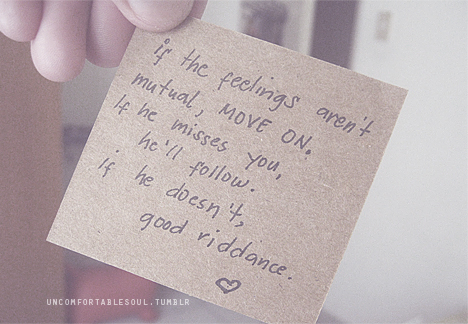 if the feelings aren't
mutual, MOVE ON.
If he misses you,
he'll follow.
if he doesn't,
good riddance.
UNCOMFORTABLESOUL.TUMBLR